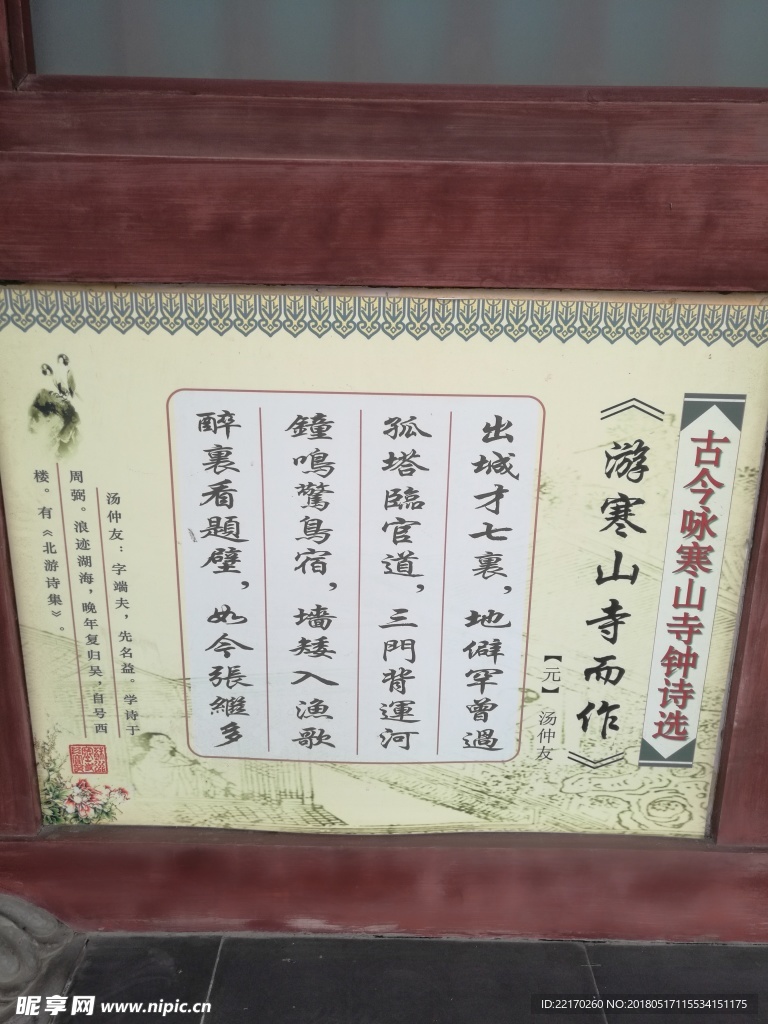 古今咏寒山寺钟诗选
《游寒山寺而作》
【元】 汤仲友
出城才七裏，地僻罕曾過
孤塔臨官道，三門背運河
鐘鳴驚鳥宿，墙矮入漁歌
醉裏看題壁，如今張繼多
汤仲友：字端夫，先名益。学诗于
周弼。浪迹湖海，晚年复归吴，自号西
楼。有《北游诗集》。
昵享网 www.nipic.cn
ID:22170260 NO:20180517115534151175